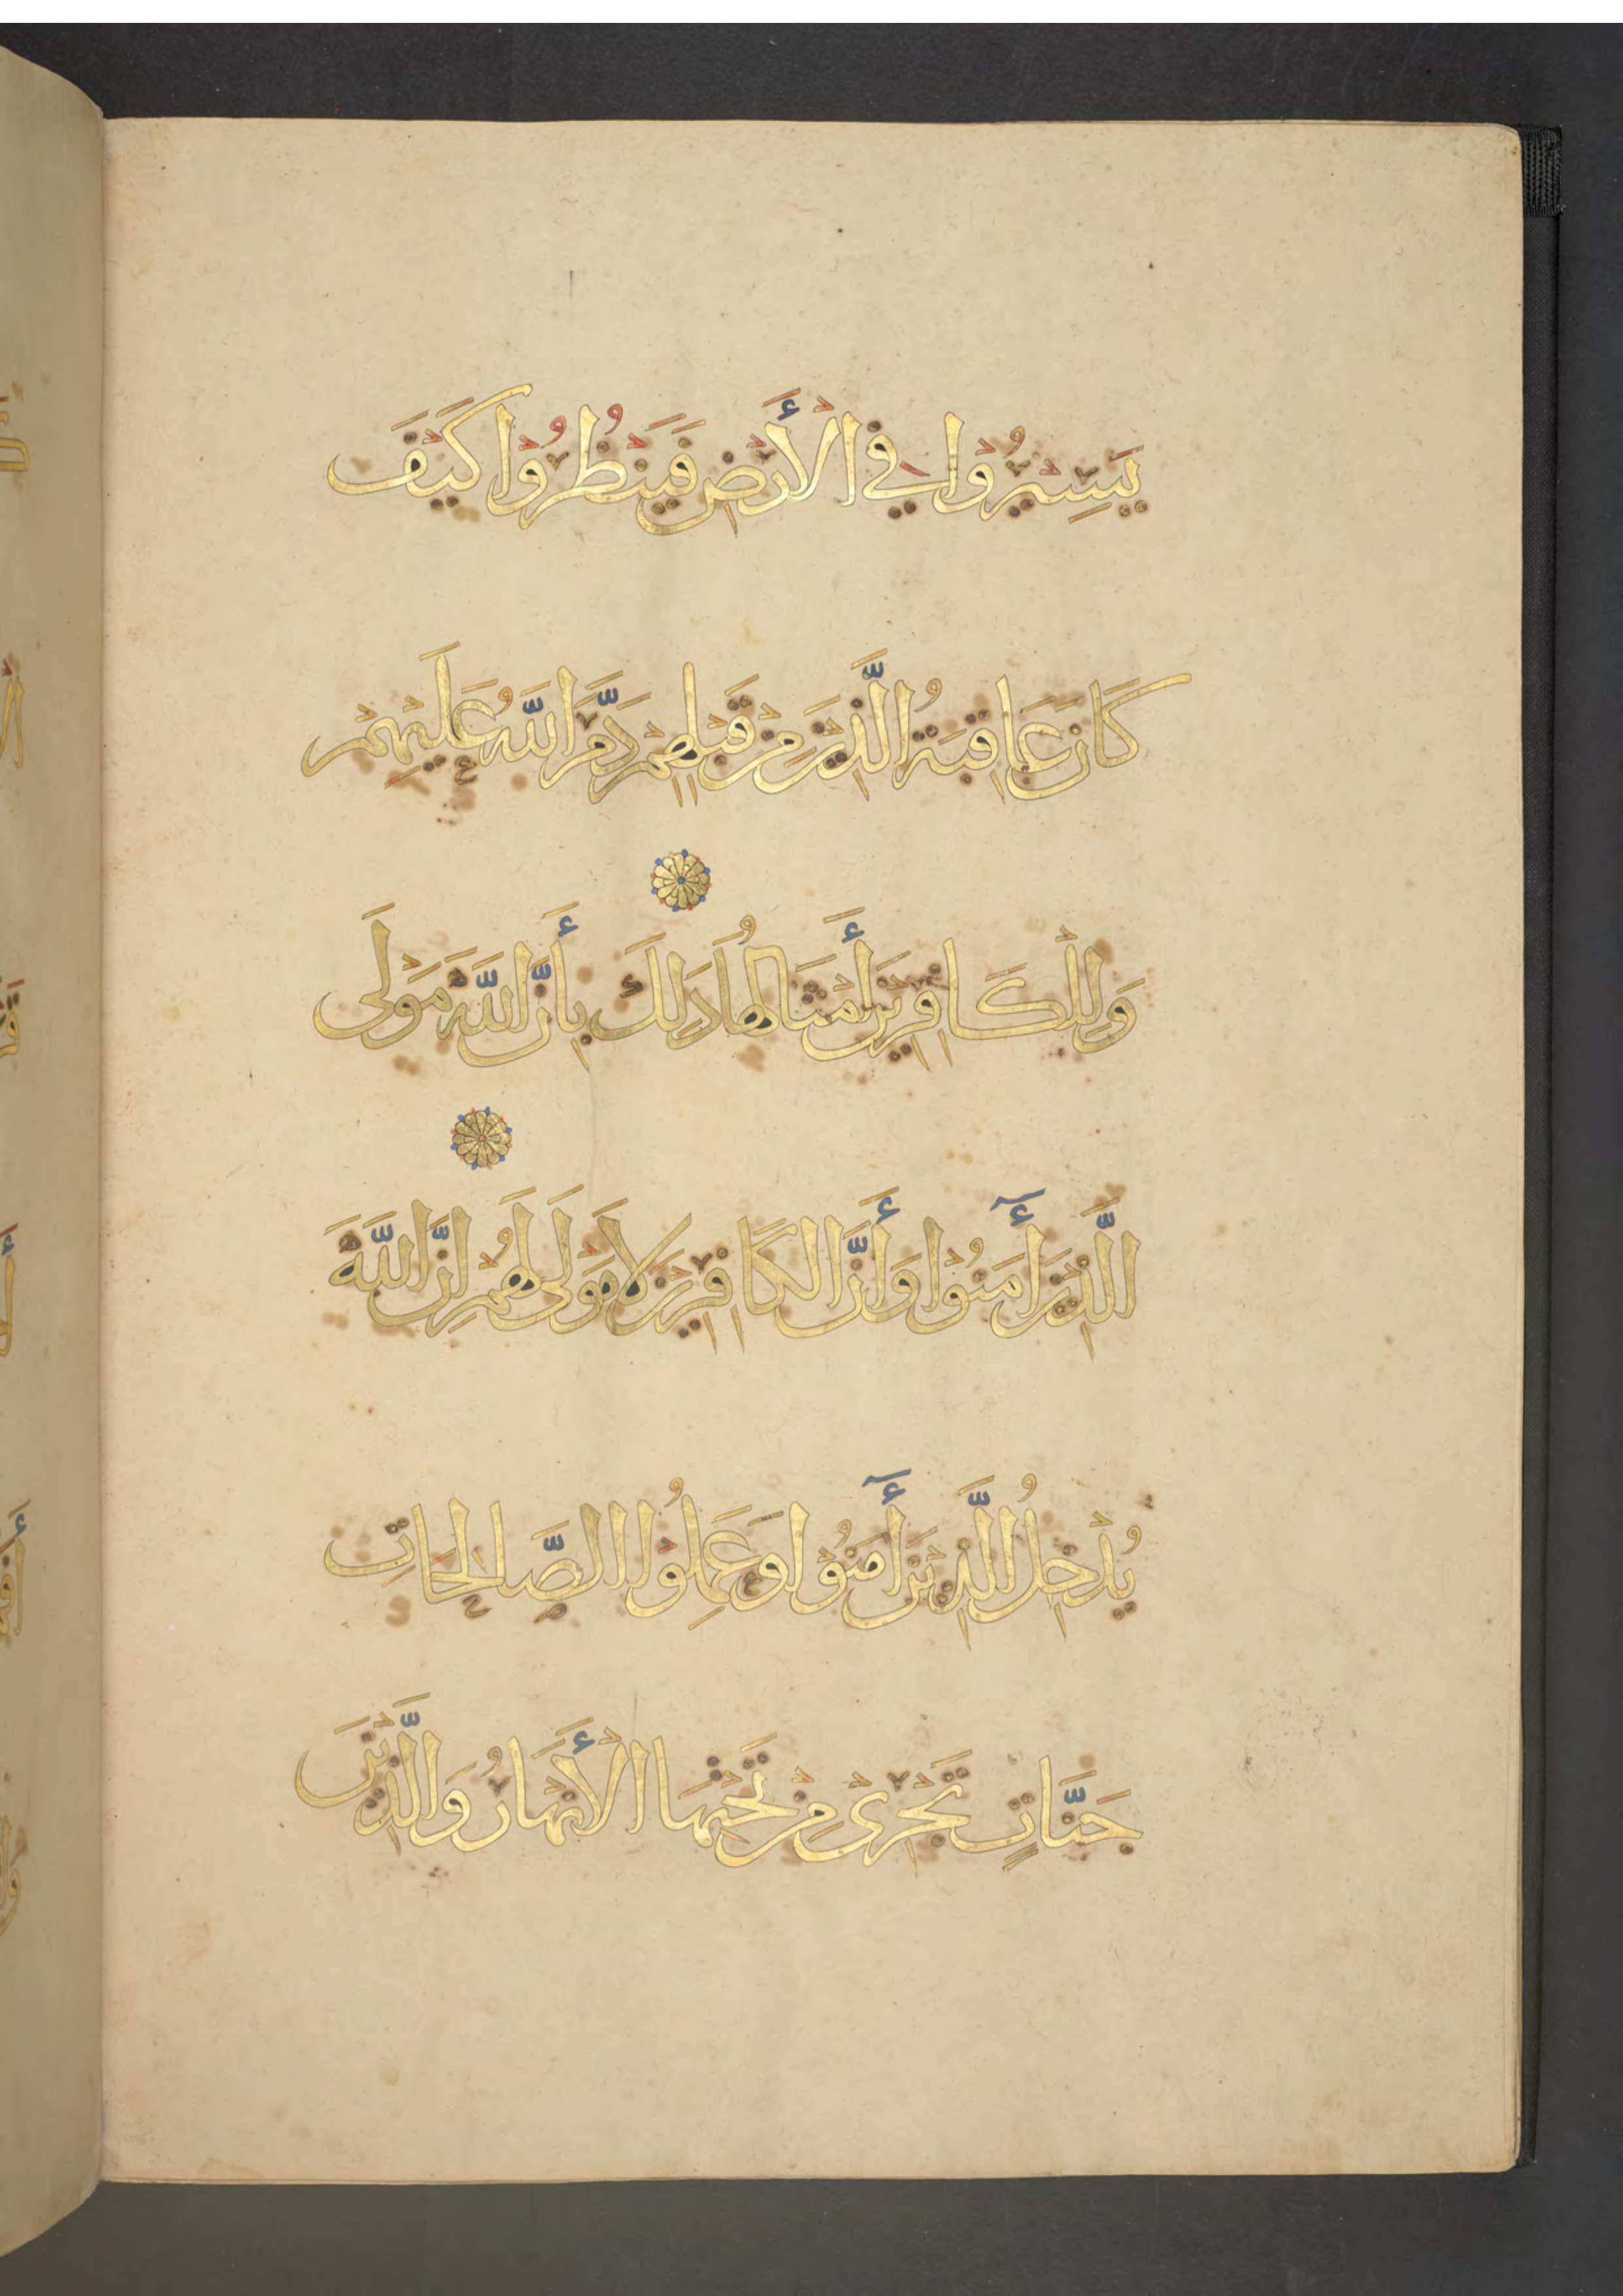 يَسِيْرُوْا فِي الْأَرْضِ فَيَنْظُرُوْا كَيْفَ
كَانَ عَاقِبَةُ الَّذِيْنَ مِنْ قَبْلِهِمْ دَمَّرَ اللَّهُ عَلَيْهِمْ
وَلِلْكَافِرِيْنَ أَمْثَالُهَا ذَلِكَ بِأَنَّ اللَّهَ مَوْلَى
الَّذِيْنَ أٓمَنُوْا وَأَنَّ الْكَافِرِيْنَ لَا مَوْلَى لَهُمْ إِنَّ اللَّهَ
يُدْخِلُ الَّذِيْنَ أٓمَنُوْا وَعَمِلُوْا الصَّالِحَاتِ
جَنَّاتٍ تَجْرِيْ مِنْ تَحْتِهَا الْأَنْهَارُ وَالَّذِيْنَ